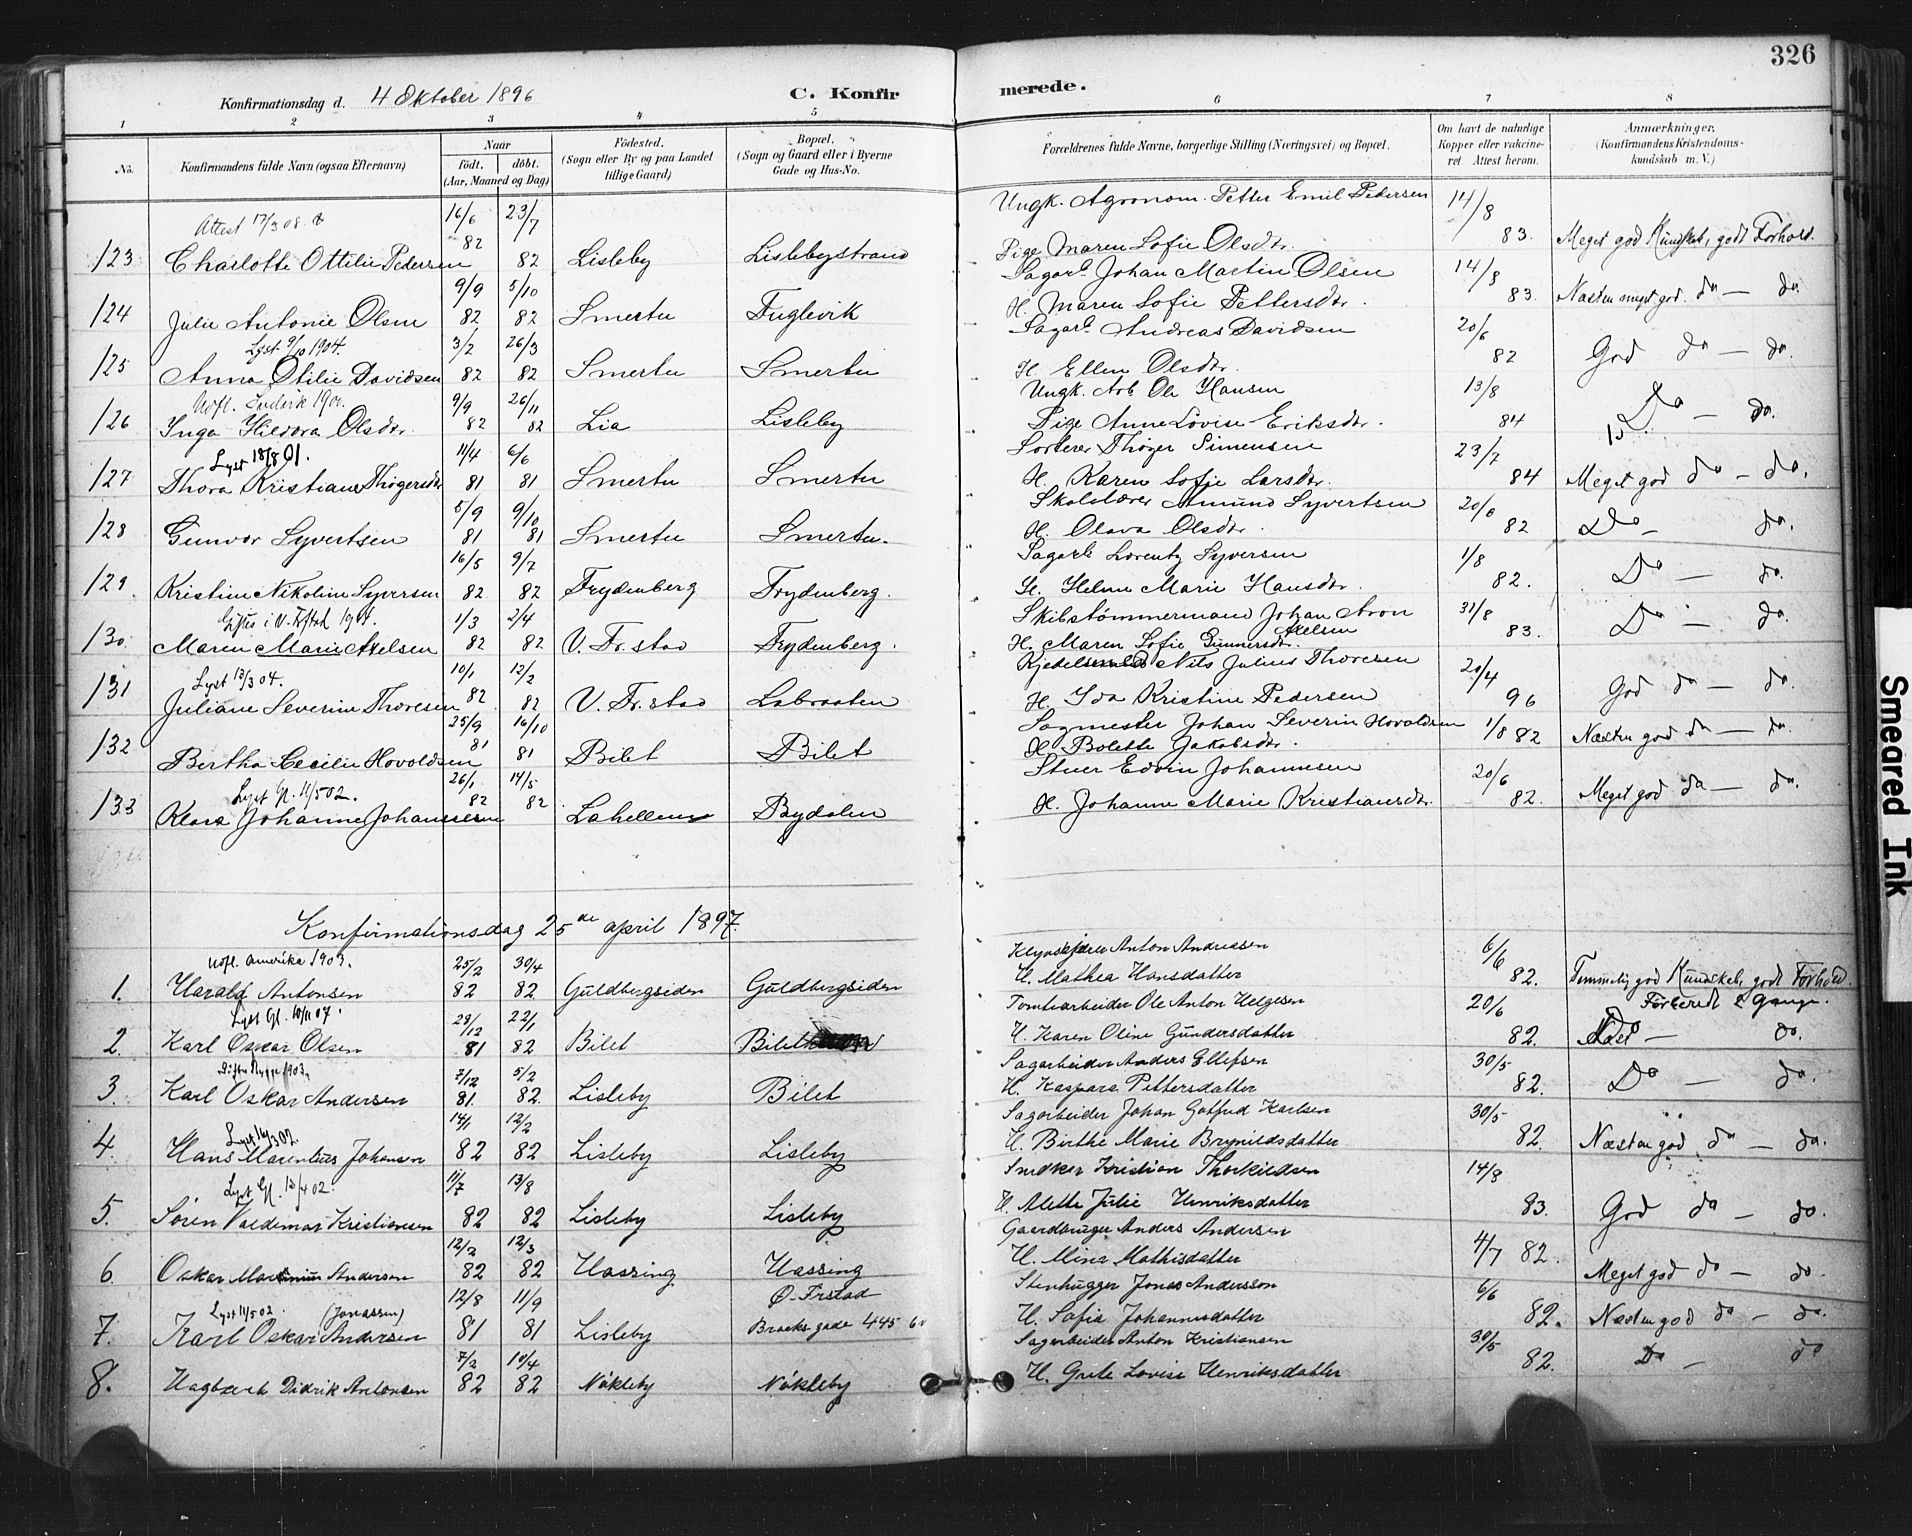 326
Konfirmationsdag d. 4 Oktober 1896 C. Konfirmerede.
1 2 3 4 5 6 7 8
No. Konfirmandens fulde Navn (ogsaa Efternavn) Naar födt. döbt. (Aar, Maaned og Dag) Födested. (Sogn eller By og paa Landet tillige Gaard) Bopæl. (Sogn og Gaard eller i Byerne Gade og Hus-No. Forældrenes fulde Navne, borgerlige Stilling (Næringsvei) og Bopæl. Om havt de naturlige Kopper eller vaccineret. Attest herom. Anmærkninger. (Konfirmandens Kristendomskundskab m. V.)
Attest 17/3 08. 16/6 23/7 Ungk. Agronom. Petter Emil Pedersen 14/8
123 Charlotte Ottilie Pedersen 82 82 Lisleby Lislebystrand Pige Maren Sofie Olsdtr. 83. Meget god Kundskab, godt Forhold.
9/9 5/10 Sagarb. Johan Martin Olsen 14/8
124 Julie Antonie Olsen 82 82 Smertu Fuglevik H. Maren Sofie Pettersdtr. 83. Næsten meget god. do — do
Lyst 9/10 1904. 3/2 26/3 Sagarb. Andreas Davidsen 20/6
125 Anna Otilie Davidsen 82 82 Smertu Smertu H. Ellen Olsdtr. 82 God do — do.
9/9 26/11 Ungk. Arb. Ole Hansen 13/8
126 Inga Hildora Olsdtr. 82 82 Lia Lisleby Pige Anne Lovise Eriksdtr. 84 Do — do.
Lyst 18/8 01. 11/4 6/6 Sorterer Thøger Simensen 23/7
127 Thora Kristiane Thøgersdtr 81 81 Smertu Smertu H. Karen Sofie Larsdtr. 84 Meget god do — do.
5/9 9/10 Skolelærer Amund Syvertsen 20/6
128 Gunvor Syvertsen 81 81 Smertu Smertu. H. Olava Olsdtr. 82 Do — do.
16/5 9/7 Sagarb Lorentz Syversen 1/8
129. Kristine Nikoline Syversen 82 82 Frydenberg Frydenberg. H. Helene Marie Hansdtr. 82. Do — do.
Giftes i V. Frstad 1904. 1/3 2/4 Skibstømmermand Johan Aron Axelsen 31/8
130. Maren Marie Axelsen 82 82 V. Fr.stad Frydenberg. H. Maren Sofie Gunnersdtr. 83. Do — do.
Lyst 13/3 04. 10/1 12/2 Kjedelsmed Nils Julius Thoresen 20/4
131 Juliane Severine Thoresen 82 82 V. Fr.stad Labraaten H. Ida Kristine Pedersen 96 God do — do.
25/9 16/10 Sagmester Johan Severin Hovoldsen 1/8 82
132 Bertha Cecilie Hovoldsen 81 81 Bilet Bilet H. Bolette Jakobsdtr. Næsten god do — do.
Lyst Gl. 11/5 02. 26/1 14/5 Stuer Edvin Johannesen 20/6
133 Klara Johanne Johannesen 82 82 Lahellen Bydalen H. Johanne Marie Kristiansdtr. 82. Meget god do — do.
Konfirmationsdag 25de april 1897.
Udfl. Amerika 1903. 25/2 30/4 Anton Andreasen 6/6
1. Harald Antonsen 82 82 Guldbergsiden Guldbergsiden H. Mathea Hansdatter 82. Temmelig god Kundskab, godt Forhold. Forberedt 2 Gange.
Lyst Gl. 10/11 07. 28/12 22/1 Tomtearbeider Ole Anton Helgesen 20/6
2. Karl Oskar Olsen 81 82 Bilet Bilet H. Karen Oline Gundersdatter 82. — do.
1903. 7/12 5/2 Sagarbeider Anders Ellefsen 30/5
3. Karl Oskar Andersen 81. 82. Lisleby Bilet H. Kaspara Pettersdatter 82. Do — do.
Lyst 16/3 07. 14/1 12/2 Sagarbeider Johan Gotfred Karlsen 30/5
4. Hans Marentius Johansen 82 82 Lisleby Lisleby H. Birthe Marie Brynildsdatter 82. Næsten god do — do.
Lyst Gl. 13/4 02. 11/7 13/8 Snedker Kristian Thorkildsen 14/8
5. Søren Valdemar Kristiansen 82 82 Lisleby Lisleby H. Alette Julie Henriksdatter 83. God do — do.
12/2 12/3 Gaardbruger Anders Andersen 4/7 82.
6. Oskar Martinius Andersen 82 82 Hassing Hassing H. Mina Mathisdatter Meget god do — do.
Lyst 11/5 02. (Jonassen) 12/8 11/9 Ø. Frstad Stenhugger Jonas Andersson 6/6
7. Karl Oskar Andersen 81 81 Lisleby Brochs gade 445 H. Sofia Johannesdatter 82. Næsten god do — do.
7/2 10/4 Sagarbeider Anton Kristiansen 30/5
8. Hagbart Didrik Antonsen 82 82 Nökleby Nökleby H. Grete Lovise Henriksdatter 82. Do — do
Smeared Ink